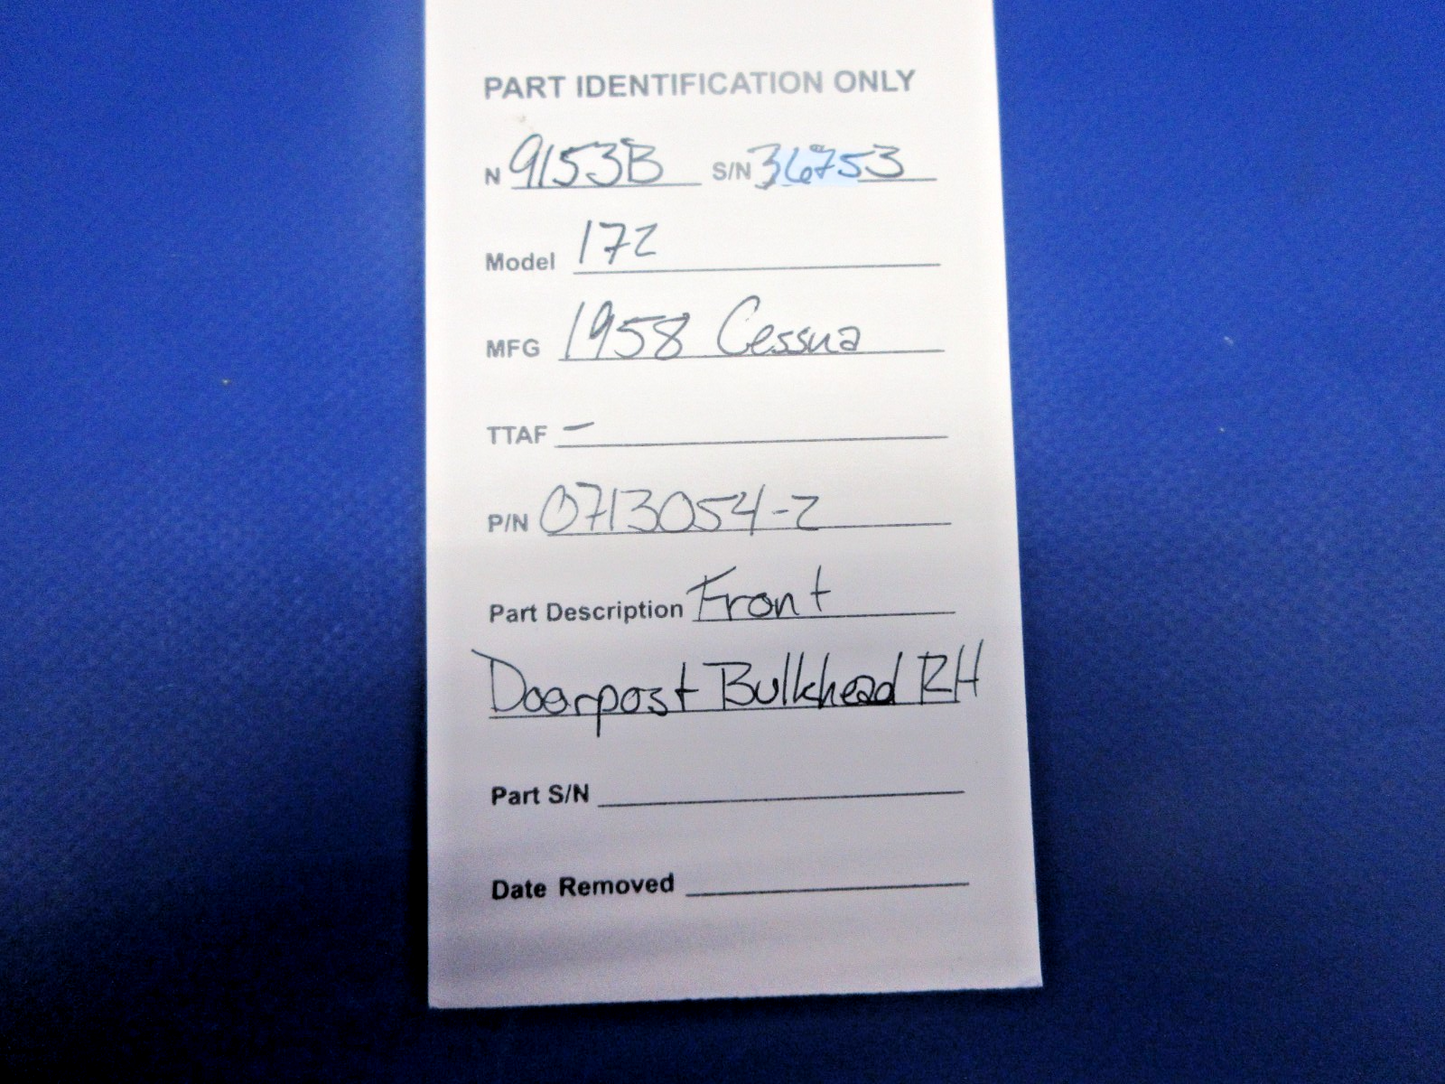 PART IDENTIFICATION ONLY
N 9153B S/N 36753
Model 172
MFG 1958 Cessna
TTAF –
P/N 0713054-2
Part Description Front
Doorpost Bulkhead RH
Part S/N
Date Removed